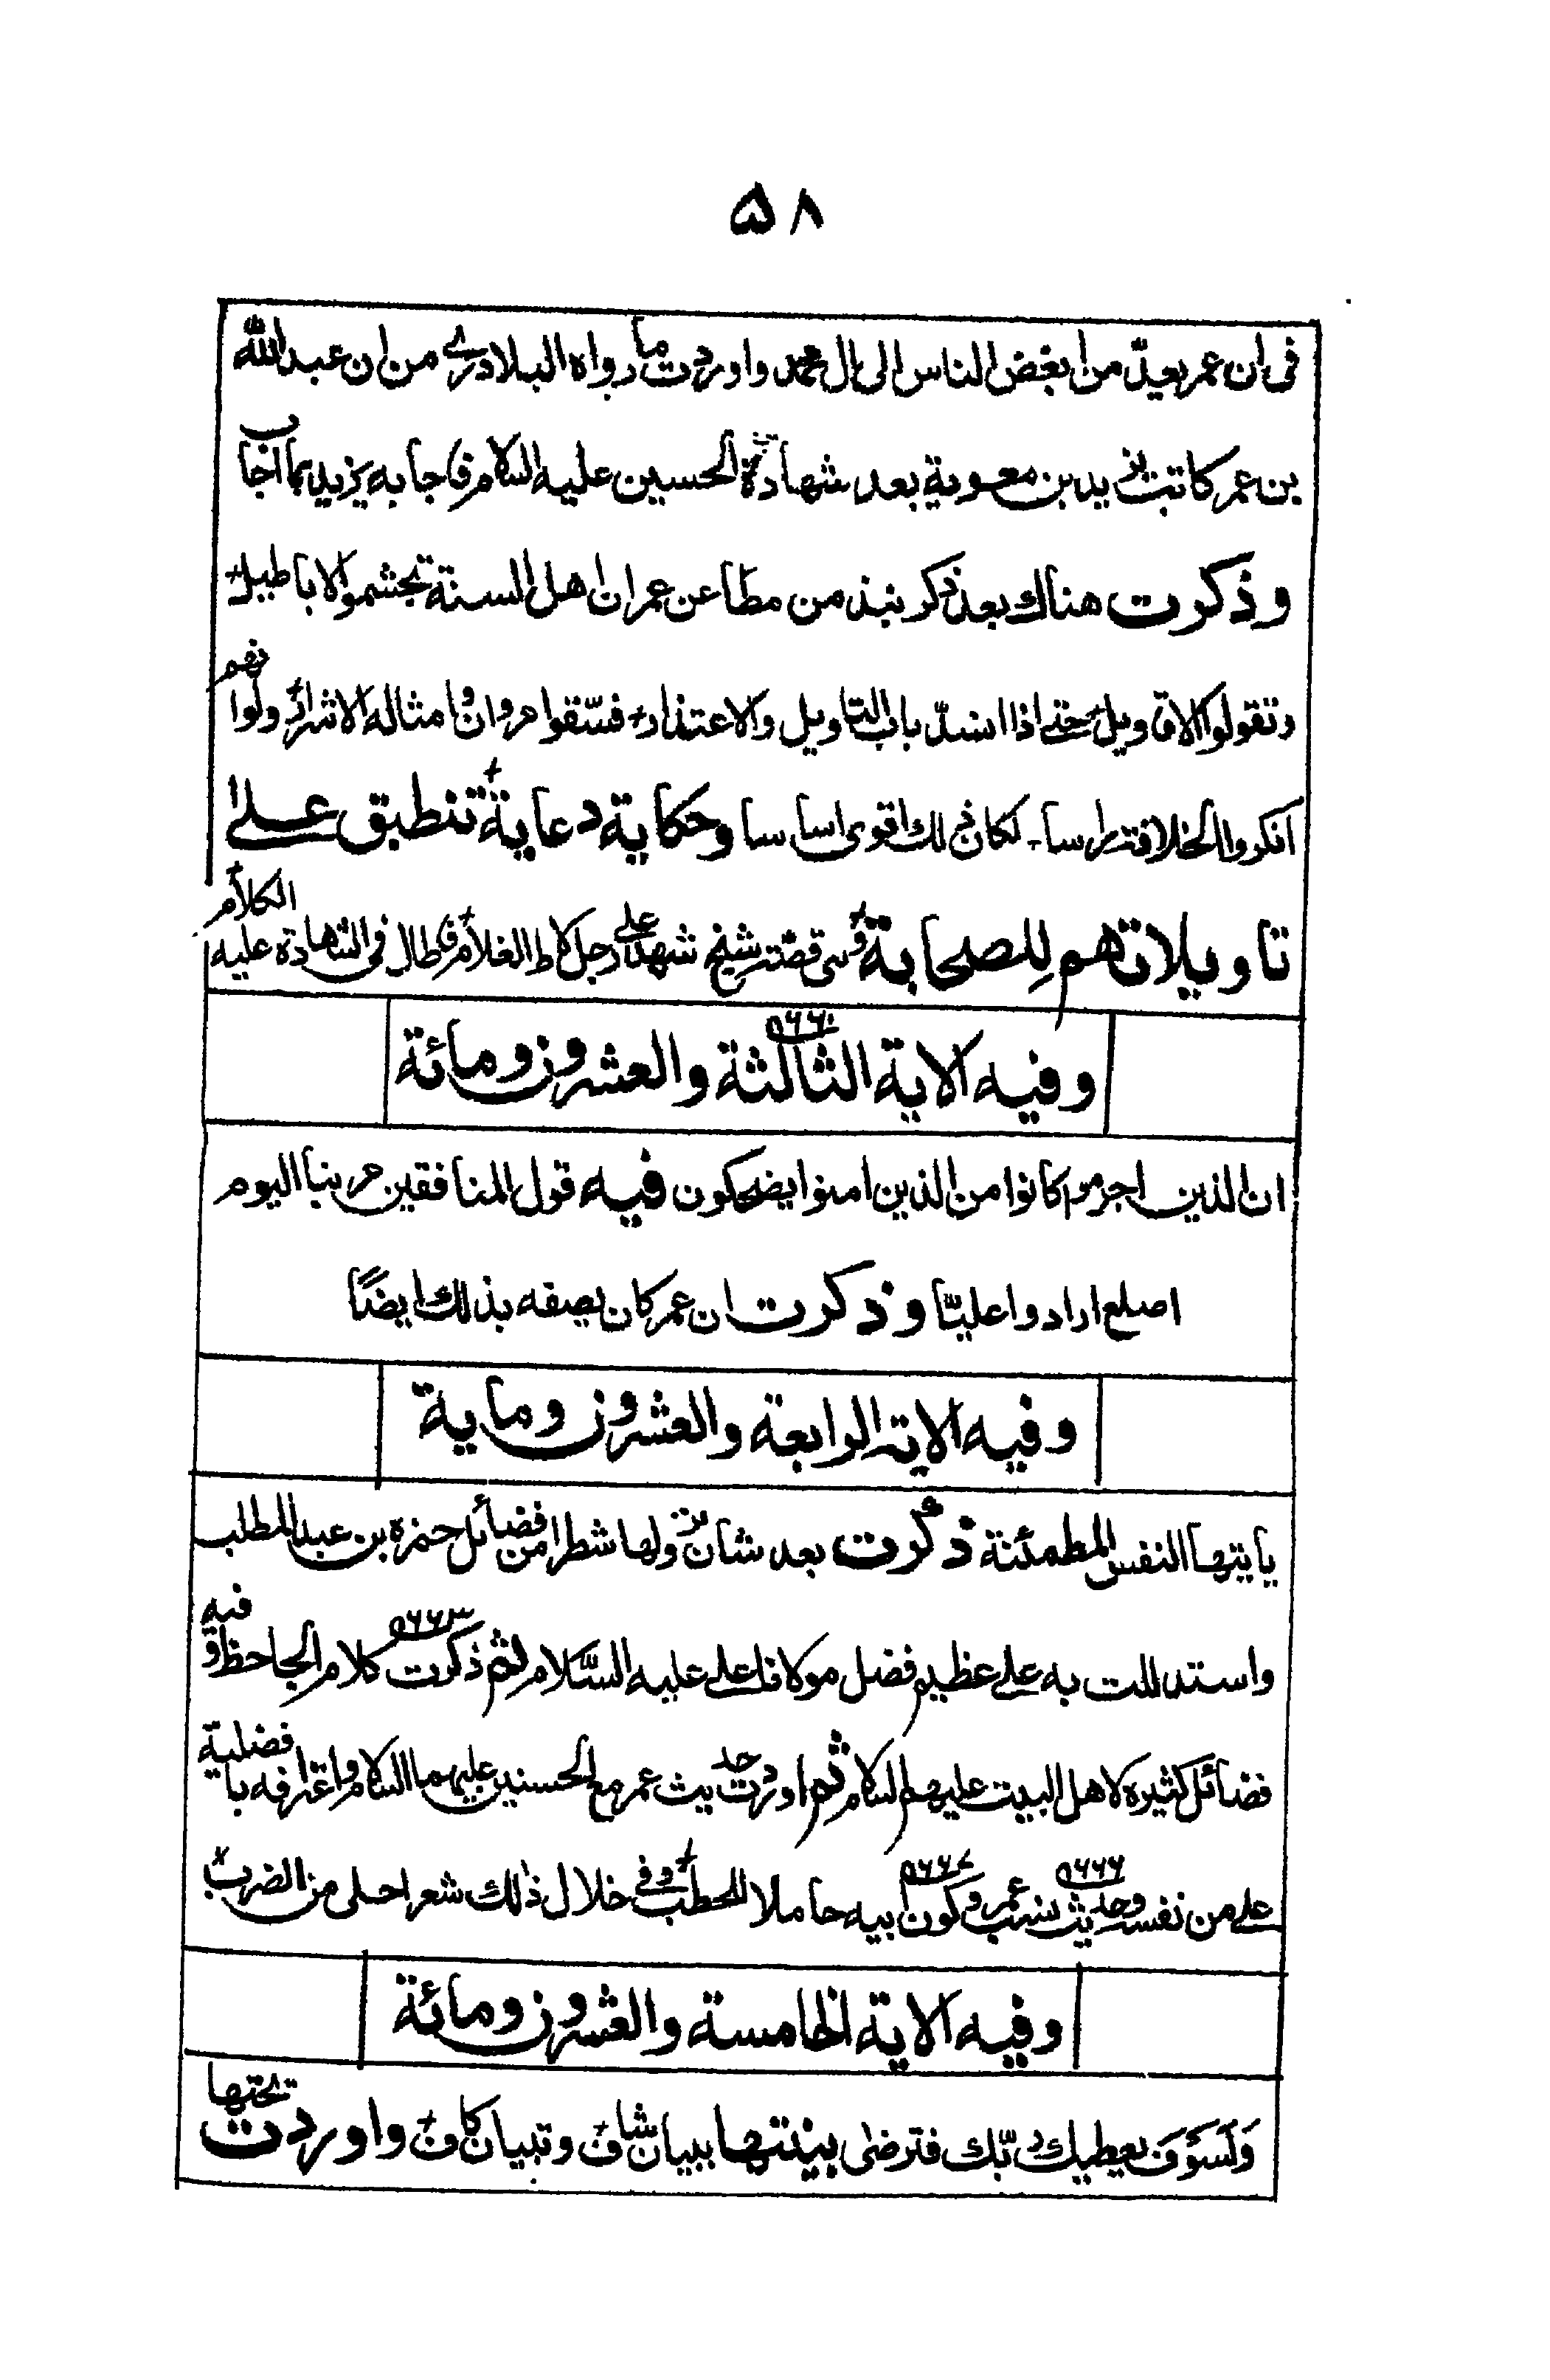 ۵۸
فى ان عمر يعدّ من ابغض الناس الى ال محمد واوردت ما رواه البلاذرى من ان عبد الله
بن عمر كاتب يزيد بن معوية بعد شهادة الحسين عليه السلام فاجابه يزيد بما اجاب
وذكرت هناك بعد ذكر نبذ من مطاعن عمر ان اهل السنة تجشموا الاباطيل
وتقولوا الاقاويل حتى اذا انسدّ باب التاويل والاعتذار فسّقوا مروان وامثاله الاشرار ولوانهم
انكروا الخلافة راسا لكان ذلك اقوى اساسا وحكاية دعابة تنطبق على
تاويلاتهم للصحابة وهى قصّة شيخ شهد على رجل لاط الغلام فطال فى الشهادة عليه الكلام
وفيه الاية الثالثة والعشرون ومائة
۵۶۶۰
ان الذين اجرموا كانوا من الذين امنوا يضحكون فيه قول المنافقين مر بنا اليوم
اصلع ارادوا عليّا وذكرت ان عمر كان يصفه بذلك ايضًا
وفيه الاية الرابعة والعشرون وماية
يايتها النفس المطمئنة ذكرت بعد شان نزولها شطرا من فضائل حمزه بن عبد المطلب
واستدللت به على عظيم فضل مولانا على عليه السّلام ثم ذكرت كلام الجاحظ وفيه
۵۶۶۳
فضائل كثيره لاهل البيت عليهم السلام ثم اوردت حديث عمر مع الحسنين عليهما السلام واعترافه بافضلية
على من نفسه وحديث نسب عمر وكون ابيه حاملا للحطب وفى خلال ذلك شعر احلى من الضرب
۵۶۶۶ ۵۶۶۷
وفيه الاية الخامسة والعشرون ومائة
وَلَسَوفَ يعطيك ربّك فترضى بينتها ببيان شاف وتبيان كاف واوردت تحتها